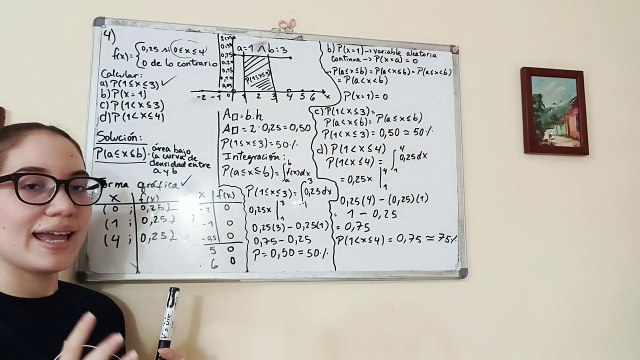 4)
f(x)= { 0,25 si 0≤x≤4
0 de lo contrario
Calcular:
a) P(1≤x≤3) ✓
b) P(x=1)
c) P(1<x≤3)
d) P(1<x≤4)
Solución:
P(a≤x≤b) = área bajo
la curva de
densidad entre
a y b
forma gráfica ✓
x f(x) x f(x)
(0 ; 0,25)
(1 ; 0,25) -1 0
(4 ; 0,25)
5 0
6 0
a=1 ∧ b=3
P(1≤x≤3)
-2 -1 0 1 2 3 4 5 6 x
A□=b.h
A□=2·0,25=0,50
P(1≤x≤3)=50%
Integración:
P(a≤x≤b)=∫f(x)dx
P(1≤x≤3)=∫0,25dx
0,25x
0,25(3)-0,25(1)
0,75-0,25
P=0,50=50%
b) P(x=1)→variable aleatoria
continua→P(x=a)=0
P(a≤x≤b)=P(a≤x<b)=P(a<x<b)
=P(a<x≤b)
P(x=1)=0
c) P(1<x≤3)=
P(a<x≤b)=P(a≤x≤b)
P(1<x≤3)=0,50=50%
d) P(1<x≤4)
P(1<x≤4)=∫0,25dx
=0,25x
0,25(4)-(0,25)(1)
=1-0,25
=0,75
P(1<x≤4)=0,75≈75%